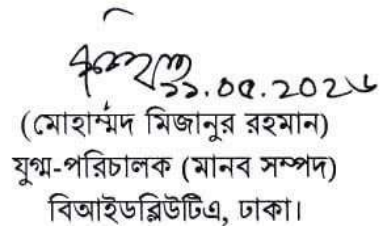 ১১.০৫.২০২৬
(মোহাম্মদ মিজানুর রহমান)
যুগ্ম-পরিচালক (মানব সম্পদ)
বিআইডব্লিউটিএ, ঢাকা।